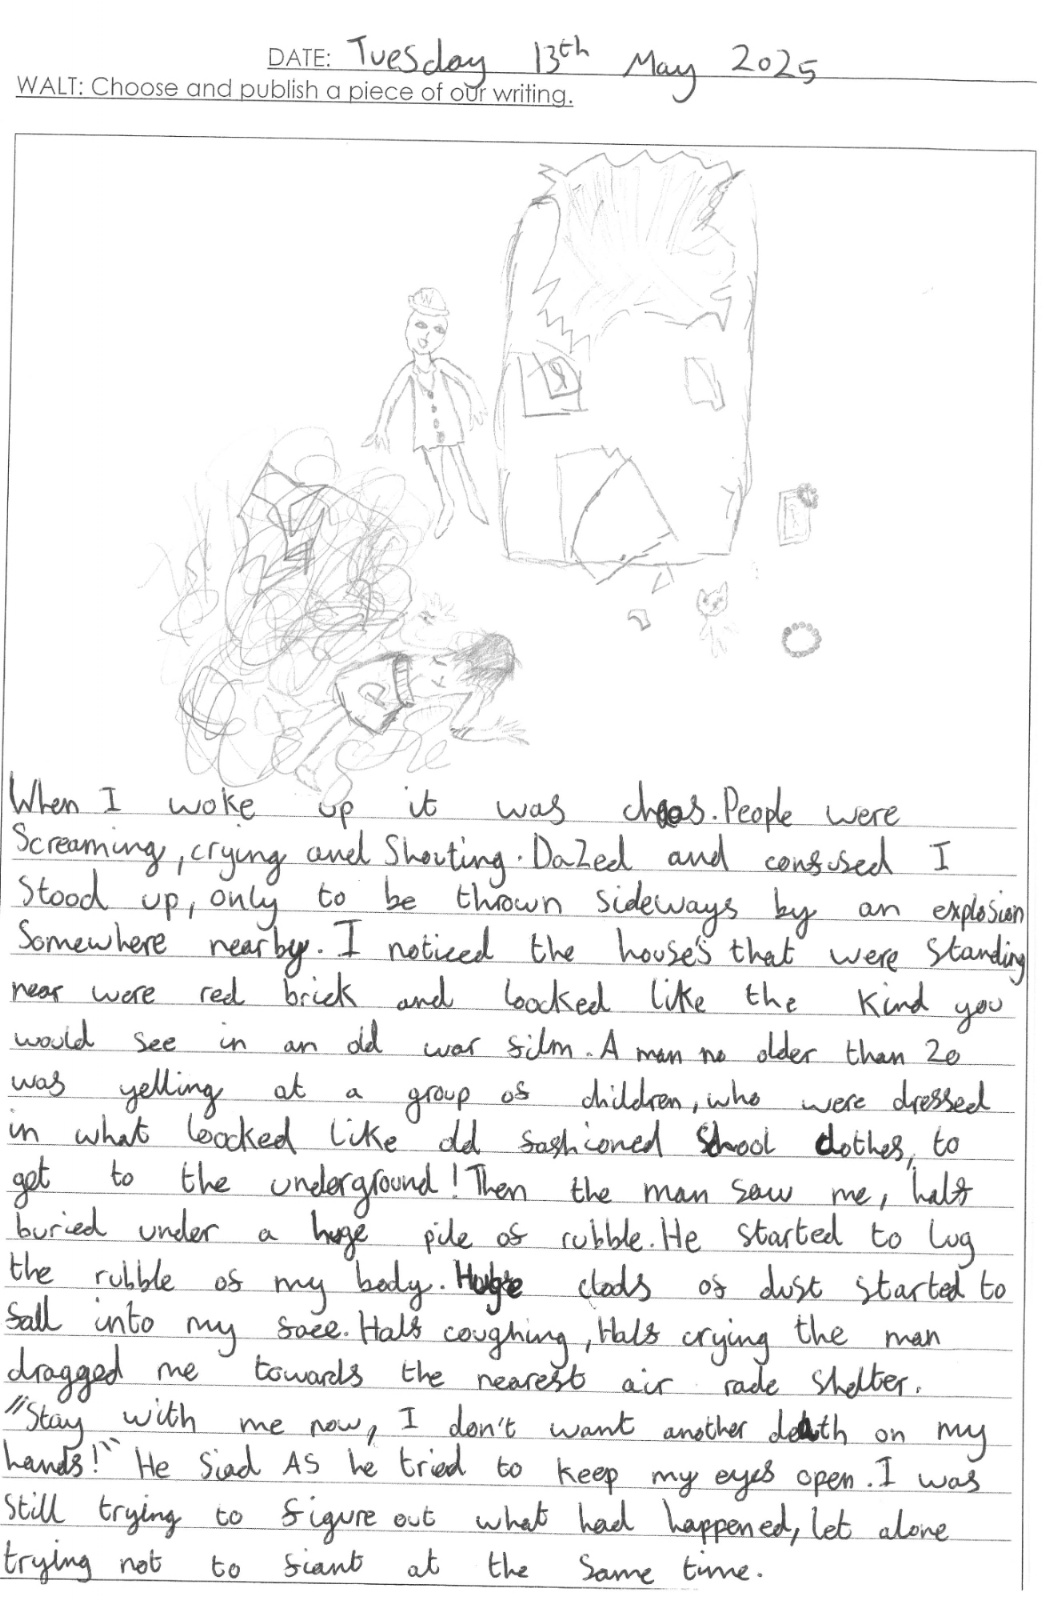 DATE: Tuesday 13th May 2025
WALT: Choose and publish a piece of our writing.
W
When I woke up it was chaos. People were
Screaming, crying and Shouting. DaZed and confused I
Stood up, only to be thrown sideways by an explosion
Somewhere nearby. I noticed the houses that were standing
near were red brick and loocked like the Kind you
would see in an old war film. A man no older than 20
was yelling at a group of children, who were dressed
in what loocked like old fashioned School clothes, to
get to the underground! Then the man saw me, half
buried under a huge pile of rubble. He started to lug
the rubble of my body. Huge clods of dust started to
fall into my face. Half coughing, Half crying the man
dragged me towards the nearest air rade Shelter.
"Stay with me now, I don't want another death on my
hands!" He Siad AS he tried to keep my eyes open. I was
Still trying to figure out what had happened, let alone
trying not to fiant at the Same time.